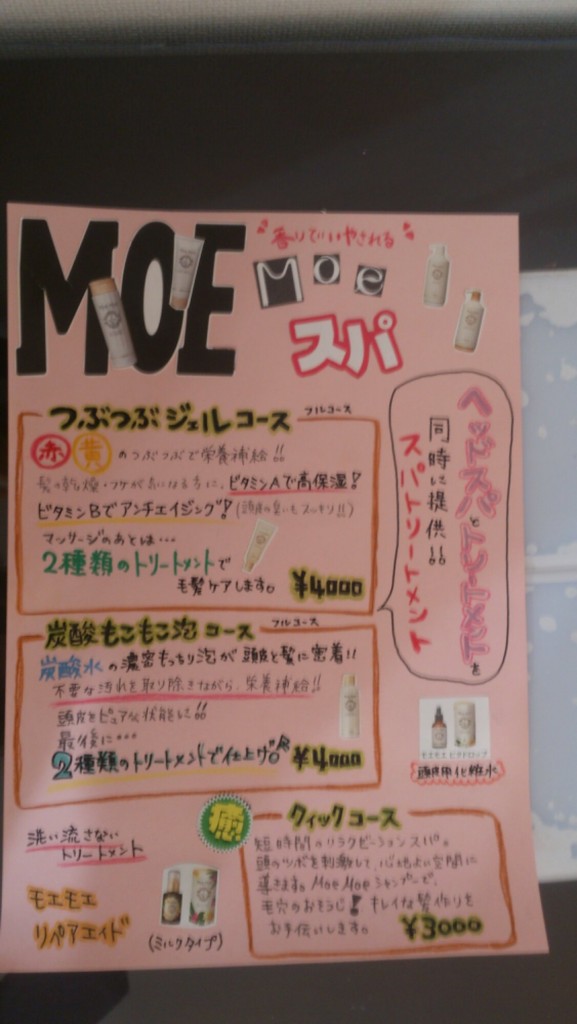 MOE
香りでいやされる
Moe
スパ
ヘッドスパとトリートメントを
同時に提供!!
スパトリートメント
つぶつぶジェルコース
フルコース
赤 黄 のつぶつぶで栄養補給!!
髪の乾燥・フケが気になる方に、ビタミンAで高保湿!
ビタミンBでアンチエイジング!(頭皮の臭いもスッキリ!!)
マッサージのあとは…
2種類のトリートメントで
毛髪ケアします。 ¥4000
炭酸もこもこ泡コース
フルコース
炭酸水の濃密もっちり泡が頭皮と髪に密着!!
不要な汚れを取り除きながら、栄養補給!!
頭皮をピュアな状態に!!
最後に…
2種類のトリートメントで仕上げ。 ¥4000
モエモエ ビタドロップ
頭皮用化粧水
癒
クイックコース
短時間のリラクゼーションスパ。
頭のツボを刺激して、心地よい空間に
導きます。MoeMoeシャンプーで、
毛穴のおそうじ!キレイな髪作りを
お手伝いします。 ¥3000
洗い流さない
トリートメント
モエモエ
リペアエイド
(ミルクタイプ)